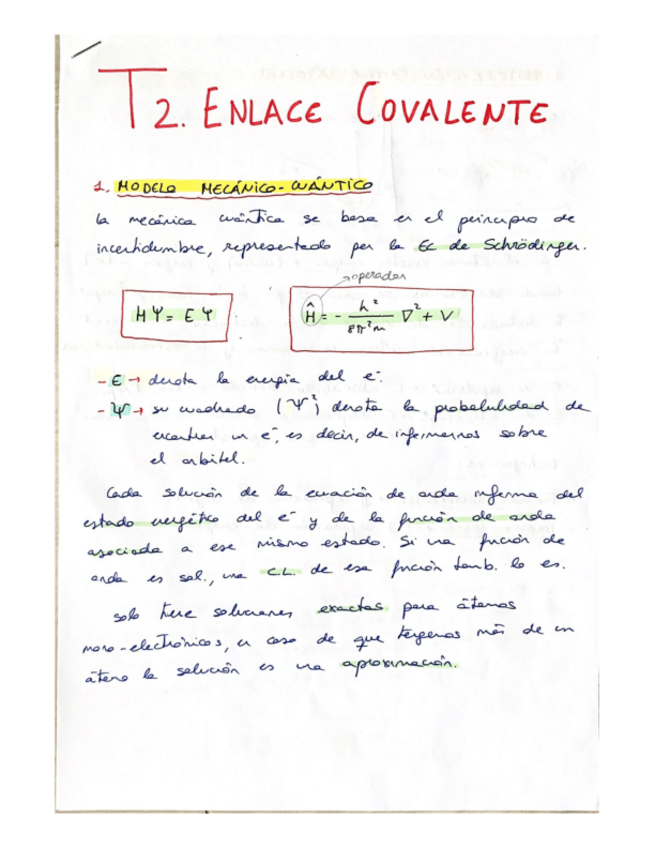 T2. ENLACE COVALENTE
1. MODELO MECÁNICO-CUÁNTICO
la mecánica cuántica se basa en el principio de
incertidumbre, representado por la Ec de Schrödinger.
operador
HΨ = EΨ
Ĥ = - h² / 8π²m ∇² + V
- E → denota la energía del e⁻
- Ψ → su cuadrado (Ψ²) denota la probabilidad de
encontrar un e⁻, es decir, de informarnos sobre
el orbital.
Cada solución de la ecuación de onda informa del
estado energético del e⁻ y de la función de onda
asociada a ese mismo estado. Si una función de
onda es sol., una C.L. de esa función tamb. lo es.
solo tiene soluciones exactas para átomos
mono-electrónicos, en caso de que tengamos más de un
átomo la solución es una aproximación.